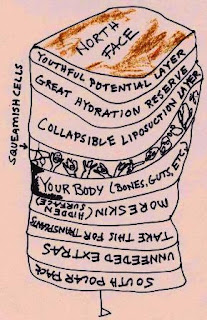 NORTH
FACE
YOUTHFUL POTENTIAL LAYER
GREAT HYDRATION RESERVE
COLLAPSIBLE LIPOSUCTION LAYER
SQUEAMISH CELLS
YOUR BODY (BONES, GUTS, ETC.)
MORE SKIN (HIDDEN
SURFACE)
TAKE THIS FOR TRANSPLANTS
UNNEEDED EXTRAS
SOUTH POLAR FACE